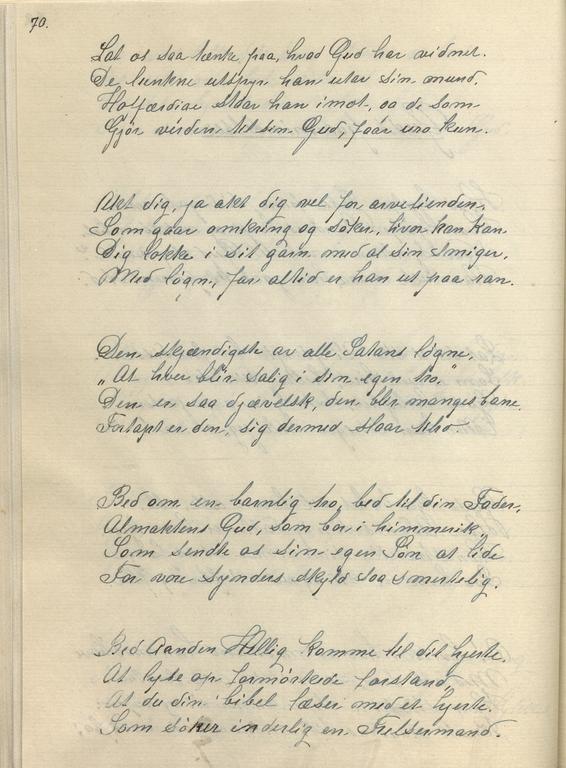 70.
Lat os saa tænke paa, hvad Gud har vidnet.
De lunkne utspyr han utav sin mund.
Hoffærdige staar han imot, og de som
Gjør verden til sin Gud, faar uro kun.
Akt dig, ja akt dig vel for arvefienden,
Som gaar omkring og søker, hvor han kan
Dig lokke i sit garn med al sin smiger,
Med løgn, for altid er han ut paa ran.
Den skjændigste av alle Satans løgne,
"At hver blir salig i sin egen tro."
Den er saa djævelsk, den blir manges bane.
Fortapt er den, sig dermed slaar til ro.
Bed om en barnlig tro, bed til din Fader,
Almaktens Gud, som bor i himmerik,
Som sendte os sin egen Søn at lide
For vore synders skyld saa smertelig.
Bed Aanden Hellig komme til dit hjerte,
At lyse op formørkede forstand,
At du din bibel læser med et hjerte
Som søker inderlig en Frelsermand.